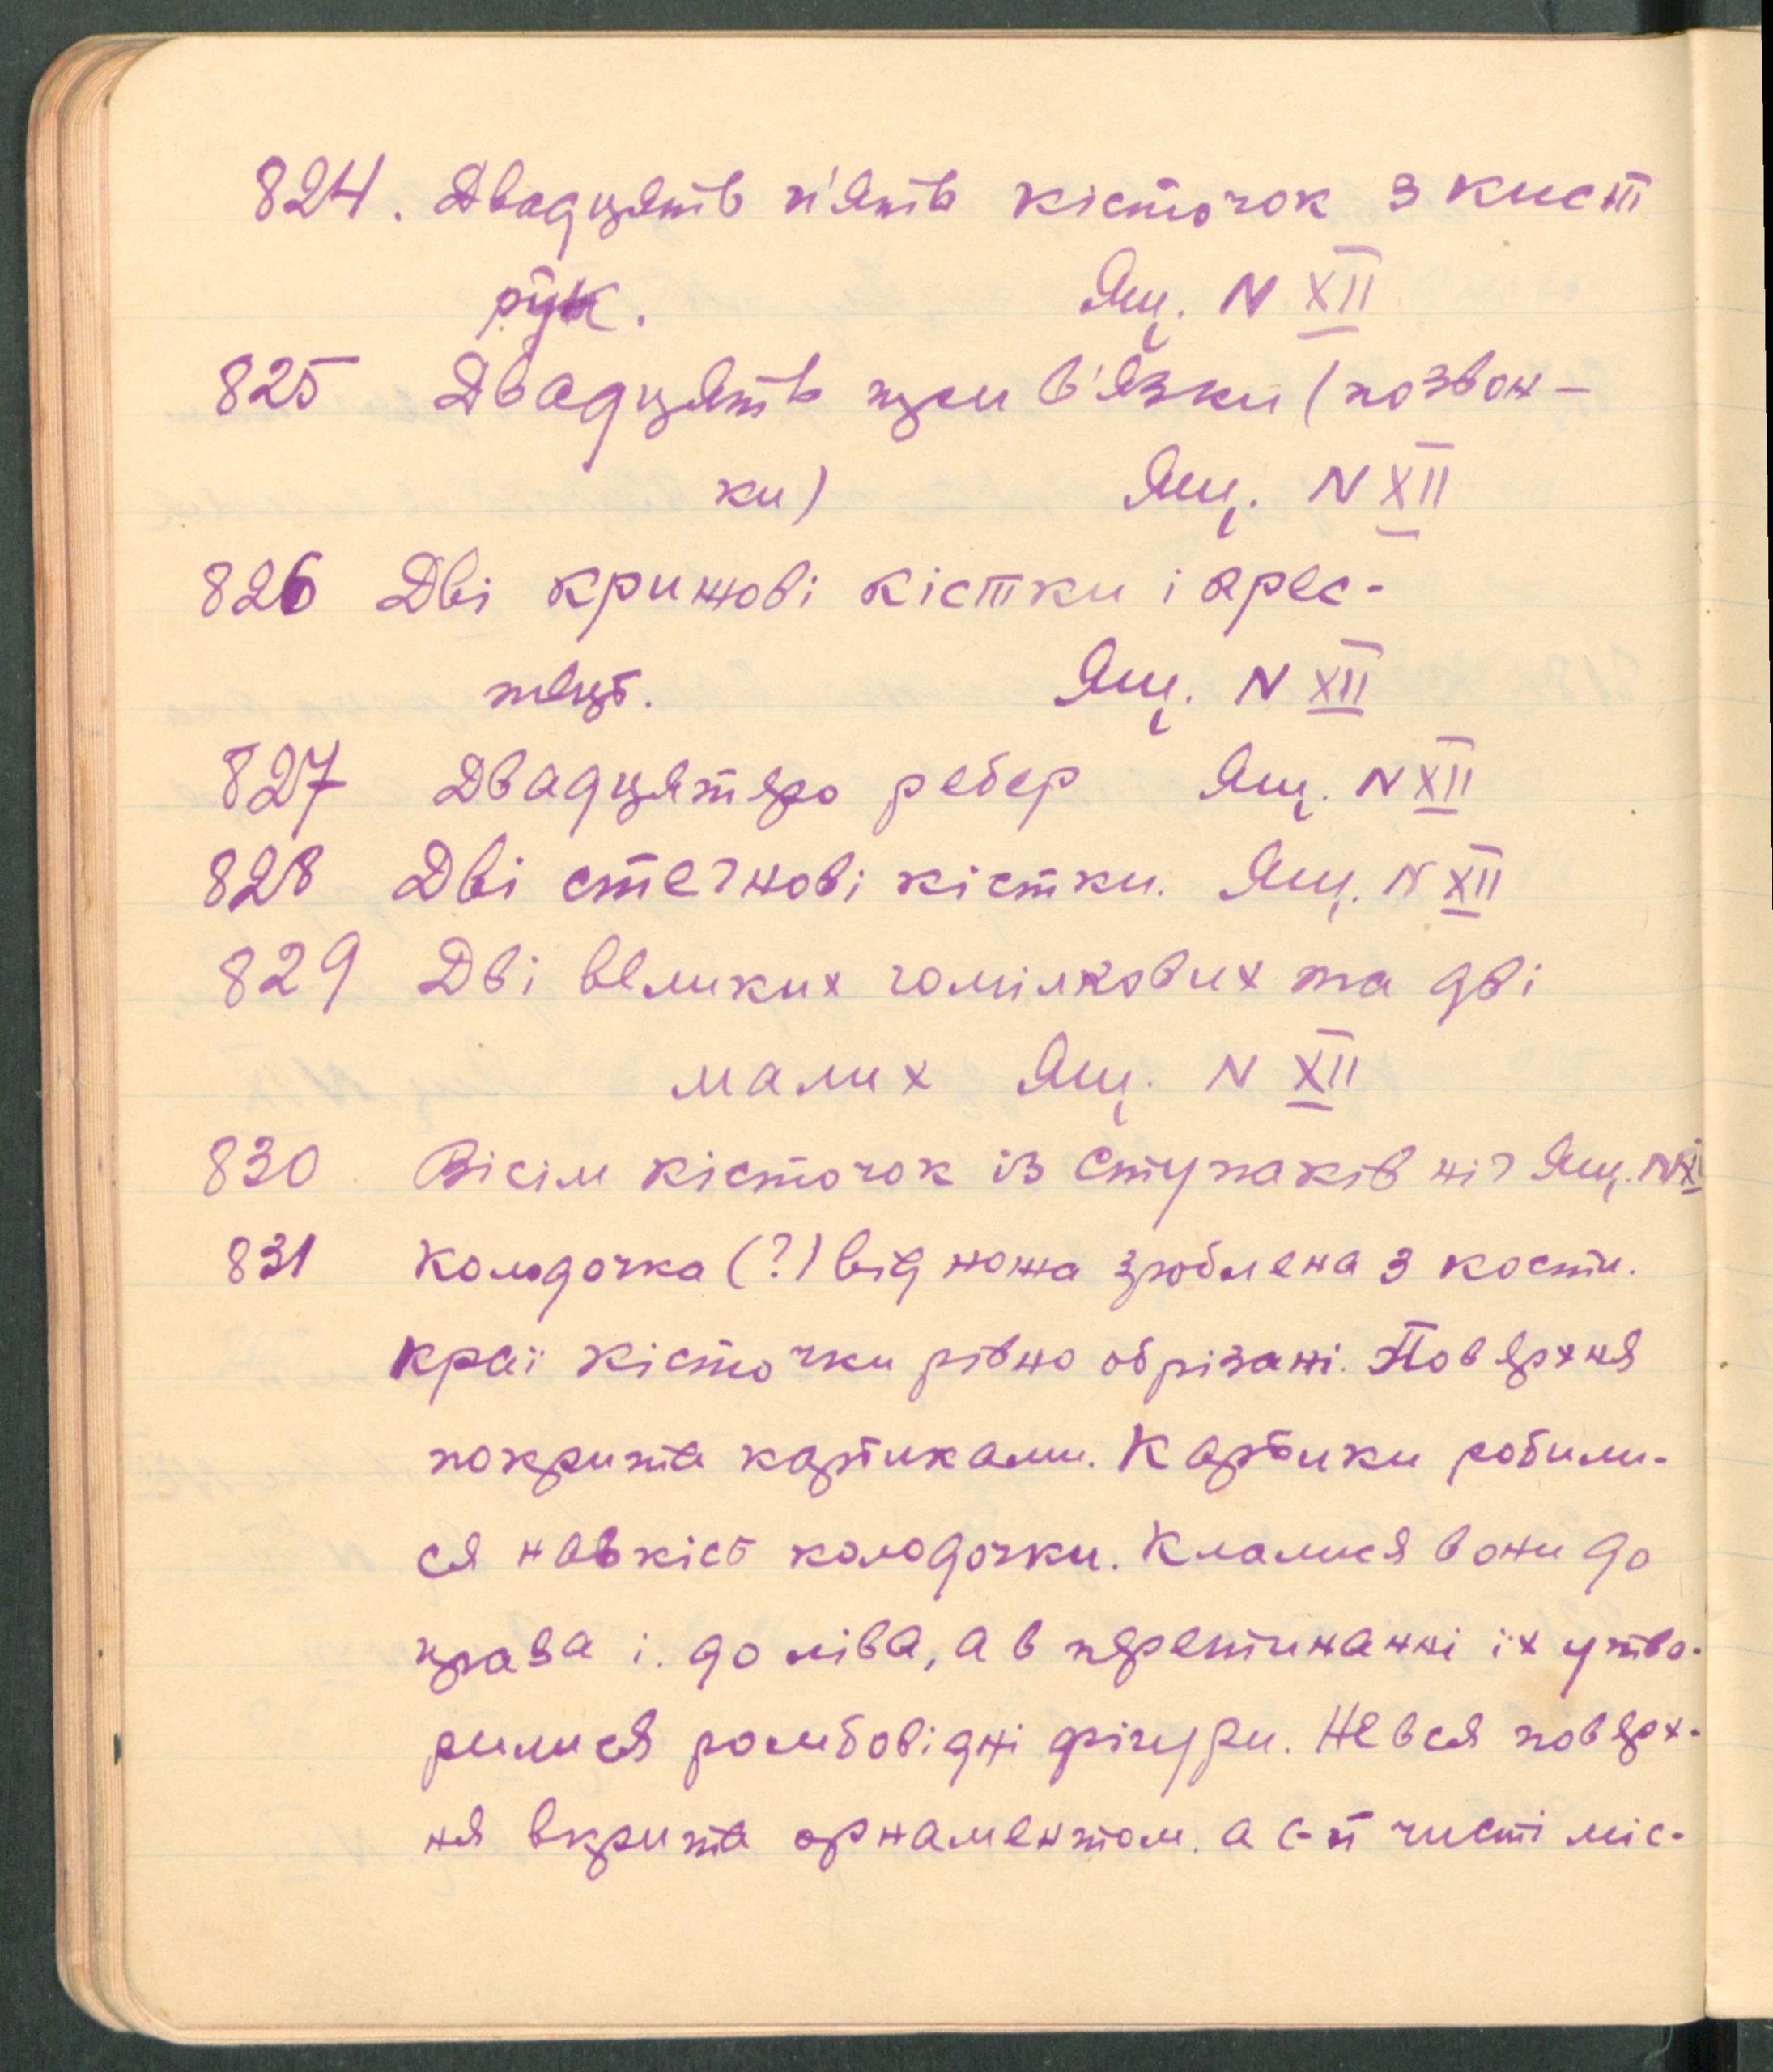 824. Двадцять п'ять кісточок з кисті
рук. Ящ. N XII
825 Двадцять три в'язки (позвон-
ки) Ящ. N XII
826 Дві крижові кістки і
Ящ. N XII
827 Двадцятеро ребер Ящ. N XII
828 Дві стегнові кістки. Ящ. N XII
829 Дві великих гомілкових та дві
малих Ящ. N XII
830 Вісім кісточок із ступаків ніг Ящ. N
831 Колодочка (?) від ножа зроблена з кости.
Краї кісточки рівно обрізані. Поверхня
покрита карбиками. Карбики робили-
ся навкіс колодочки. Клалися вони до
права і до ліва, а в перетинанні їх утво-
рилися ромбовідні фігури. Не вся поверх-
ня вкрита орнаментом. а є й чисті міс-